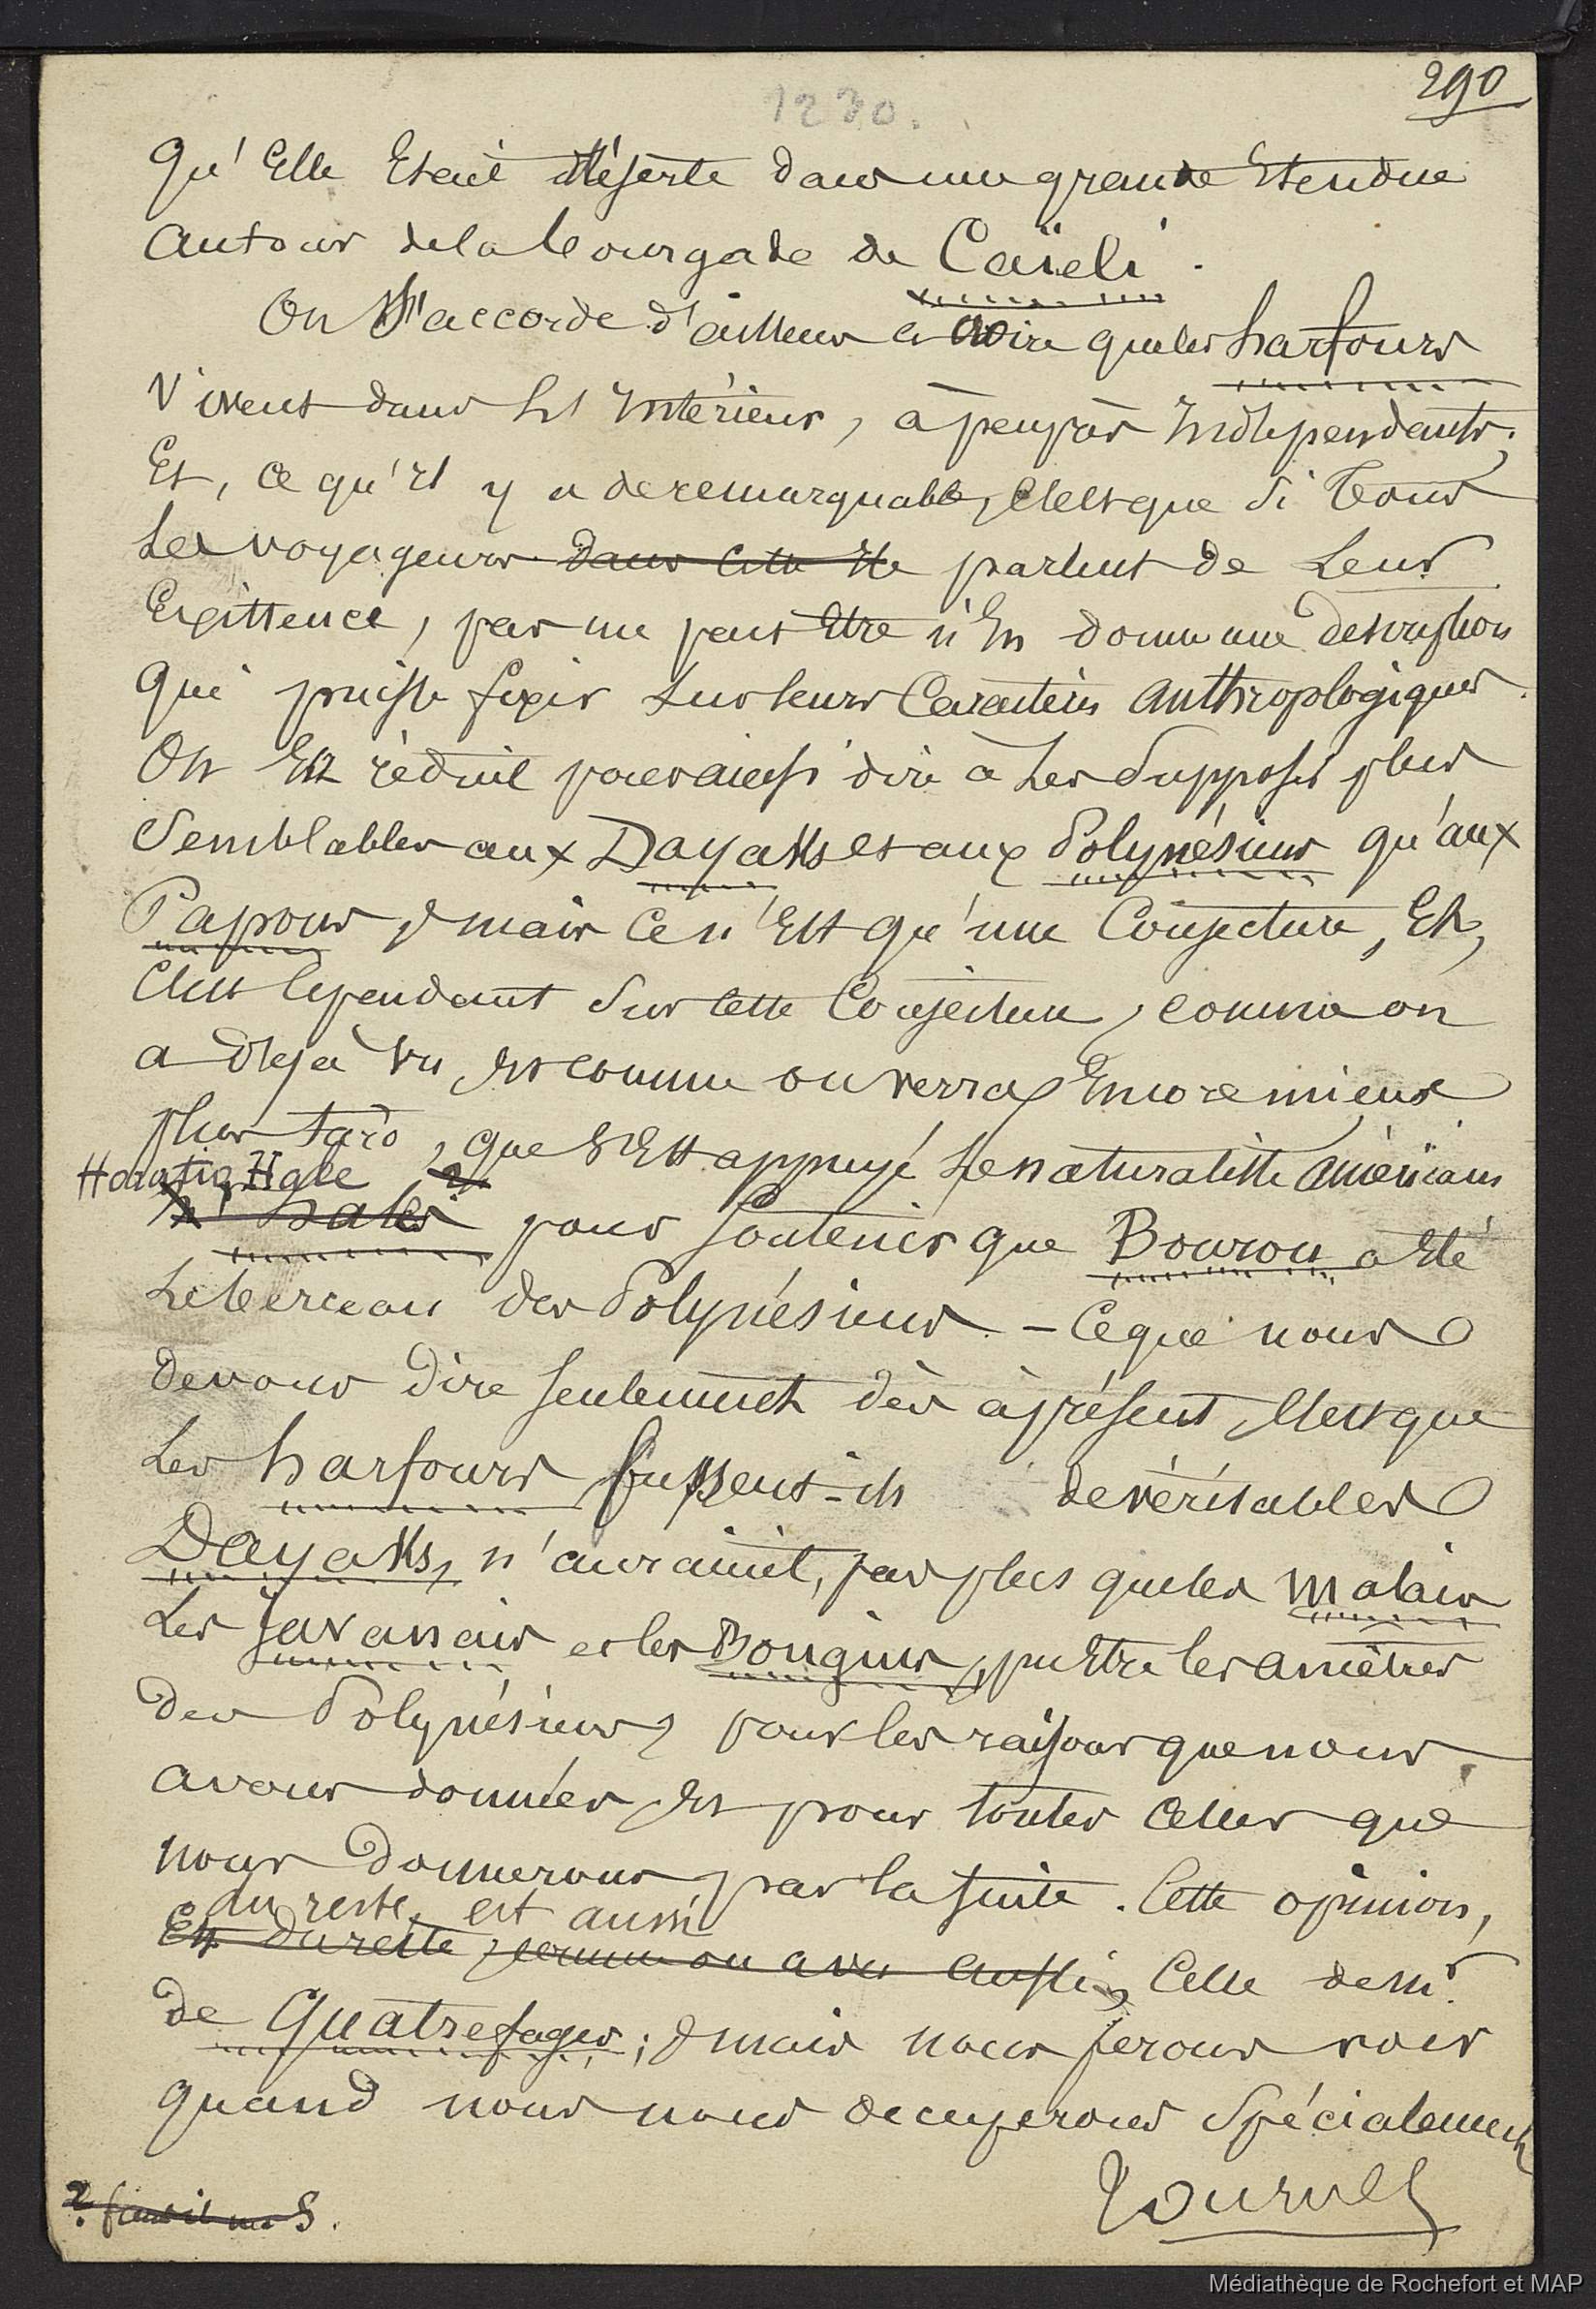 290
1230.
qu'elle était déserte dans une grande étendue
autour de la bourgade de Caïeli.
On s'accorde d'ailleurs à dire que les harfours
vivent dans les intérieur, à peu près indépendants;
et, ce qu'il y a de remarquable, c'est que si tous
les voyageurs dans cette île parlent de leur
existence, pas un peut être n'en donne une description
qui puisse fixer sur leurs caractères anthroplogiques.
On est réduit pour ainsi dire à les supposer plus
semblables aux Dayaks et aux Polynésiens qu'aux
Papous, mais ce n'est qu'une conjecture, et,
c'est cependant sur cette conjecture, comme on
a déjà vu, et comme on verra encore mieux
plus tard, que s'est appuyé le naturaliste américain
Horatio Hale
hales pour soutenir que Bourou a été
le berceau des Polynésiens. — Ce que nous
devons dire seulement dès à présent, c'est que
les harfours fussent-ils de véritables
Dayaks, n'auraient, pas plus que les Malais
les Javanais et les Bouguis, pu être les ancêtres
des Polynésiens, pour les raisons que nous
avons données et pour toutes celles que
nous donnerons par la suite. Cette opinion,
du reste, est aussi
est du reste, comme on a vu aussi, celle de Mr.
de Quatrefages; mais nous ferons voir
quand nous nous occuperons spécialement
Tournel
2. S.
Médiathèque de Rochefort et MAP